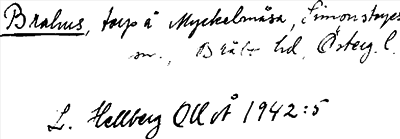 Brahus, torp å Myckelmåsa, Simonstorps
sn., Bråb. hd, Österg. l.
L. Hellberg OUÅ 1942:5